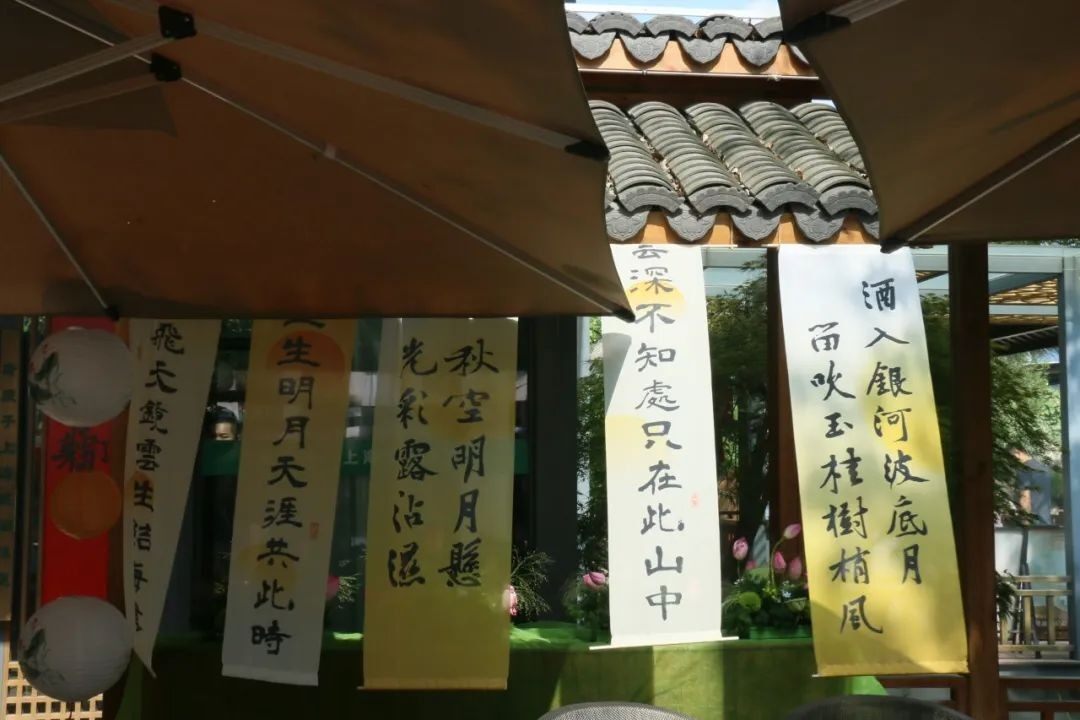 酒入銀河波底月
笛吹玉桂樹梢風
雲深不知處只在此山中
秋空明月懸
光彩露沾濕
生明月天涯共此時
飛天鏡雲生結海